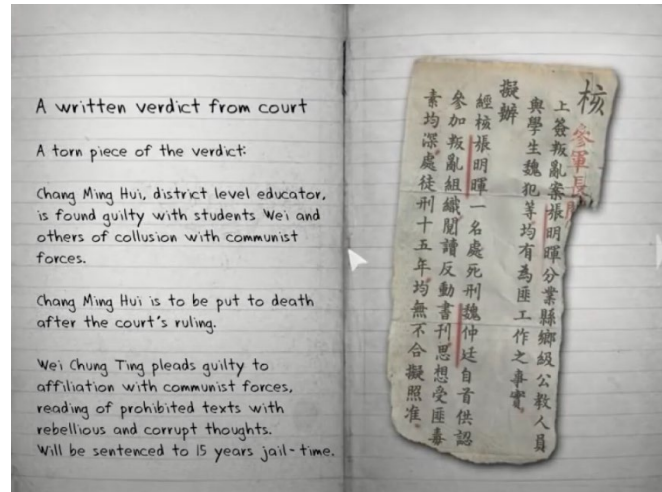 A written verdict from court
A torn piece of the verdict:
Chang Ming Hui, district level educator,
is found guilty with students Wei and
others of collusion with communist
forces.
Chang Ming Hui is to be put to death
after the court's ruling.
Wei Chung Ting pleads guilty to
affiliation with communist forces,
reading of prohibited texts with
rebellious and corrupt thoughts.
Will be sentenced to 15 years jail-time.
核
參軍長
上簽叛亂案張明暉分業縣鄉級公教人員
與學生魏犯等均有為匪工作之事實。
擬辦
經核張明暉一名處死刑魏仲廷自首供認
參加叛亂組織閱讀反動書刊思想受匪毒
素均深處徒刑十五年均無不合擬照准。